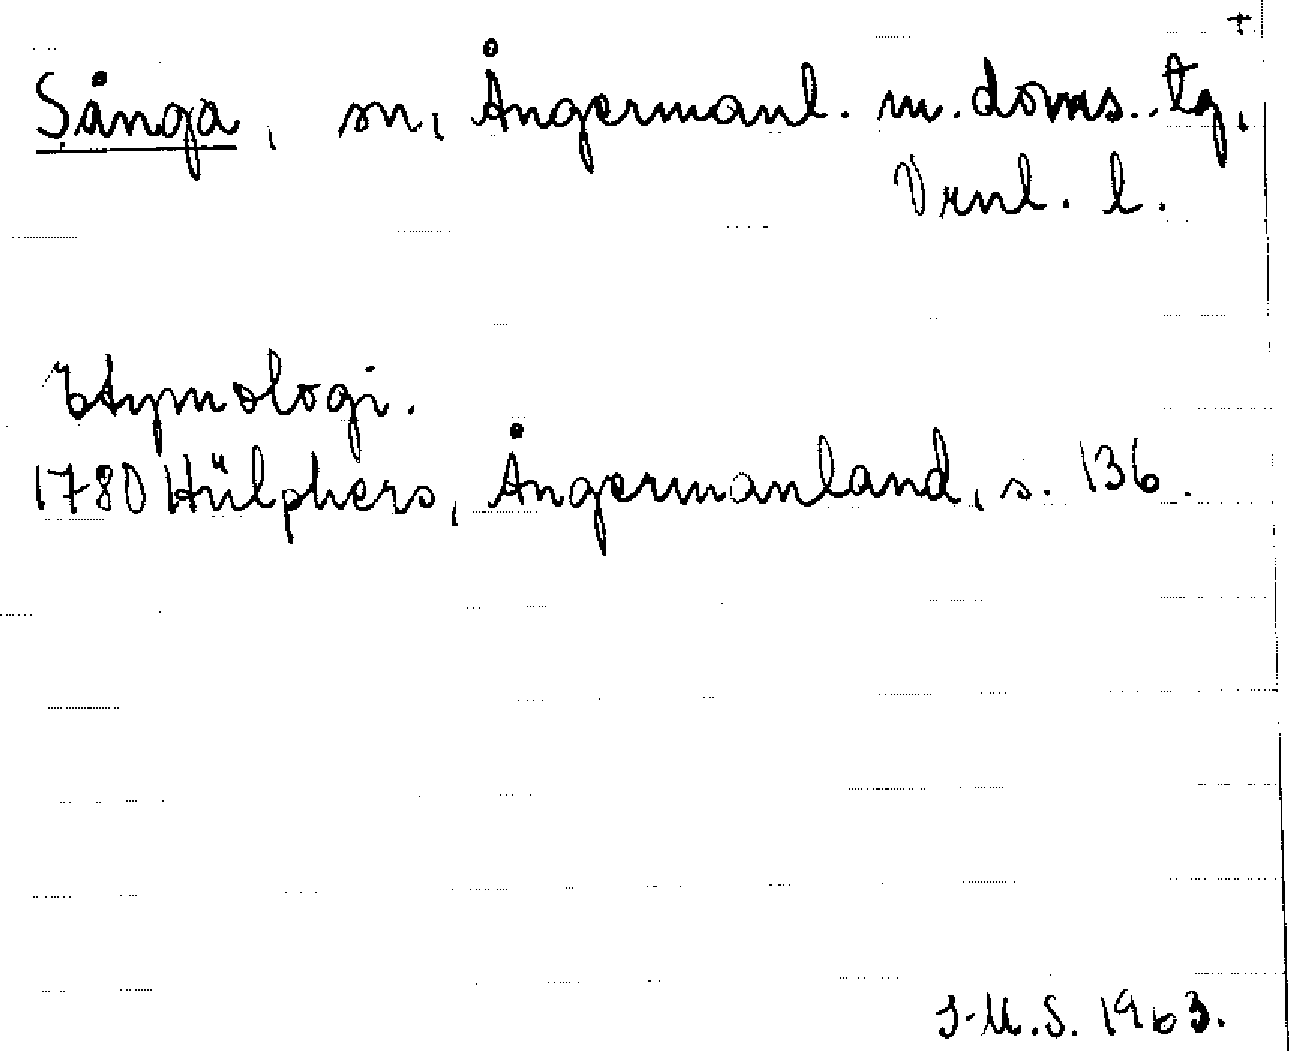 +
Sånga, sn, Ångermanl. m. doms. tg,
Vrnl. l.
Etymologi.
1780 Hülphers, Ångermanland, s. 136.
J-M.S. 1963.